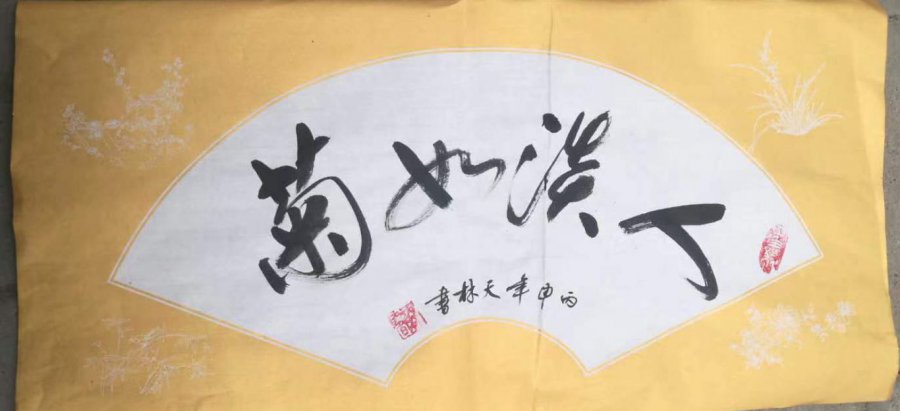 人淡如菊
丙申年天林書